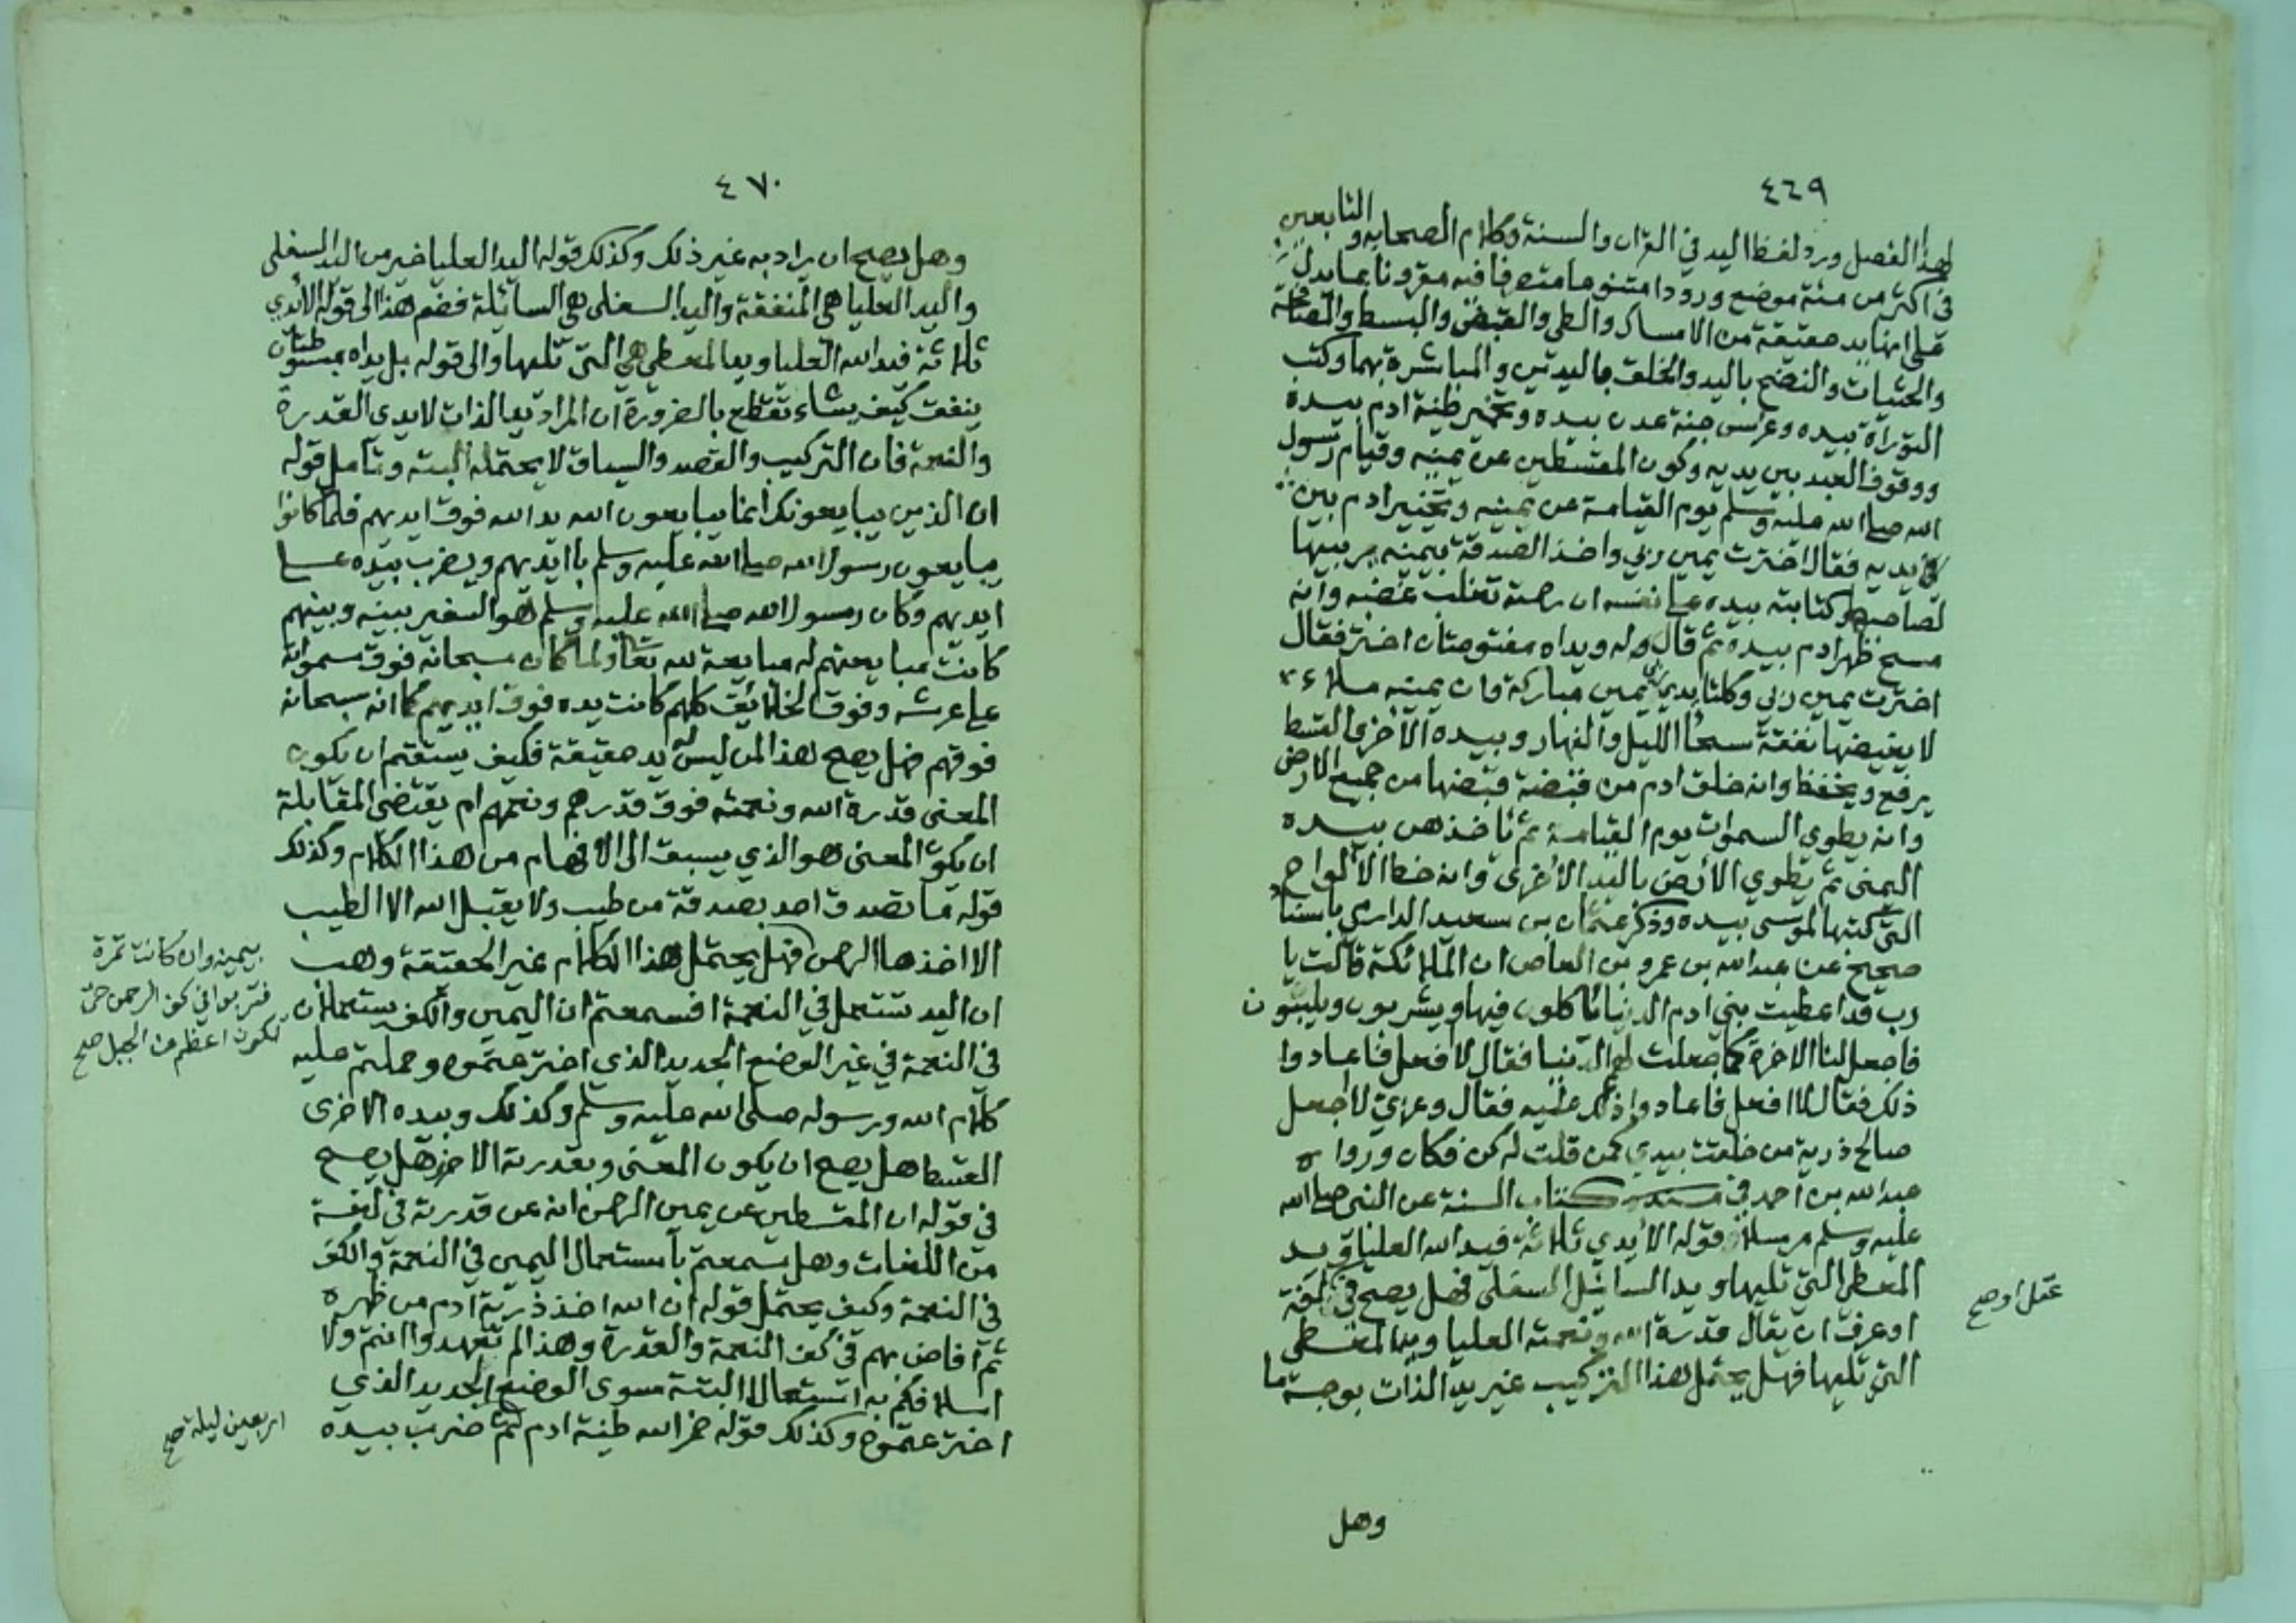 ٤٦٩
لهذا الفصل ورد لفظ اليد في القران والسنة وكلام الصحابه والتابعين
في اكثر من مئة موضع ورودا متنوعا متصرفا فيه مقرونا بما يدل
على انها يد حقيقة من الامساك والطي والقبض والبسط والمصافحة
والحثيات والنضح باليد والخلق باليدين والمباشرة بهما وكتب
التوراة بيده وغرس جنة عدن بيده وتخمير طينة ادم بيده
ووقوف العبد بين يديه وكون المقسطين عن يمينه وقيام رسول
الله صلى الله عليه وسلم يوم القيامة عن يمينه وتخيير ادم بين
يديه فقال اخترت يمين ربي واخذ الصدقة بيمينه يربيها
لصاحبها وكتابته بيده على نفسه ان رحمته تغلب غضبه وانه
مسح ظهر ادم بيده ثم قال له ويداه مفتوحتان اختر فقال
اخترت يمين ربي وكلتا يدي ربي يمين مباركة وان يمينه ملاء
لا يغيضها نفقة سحا الليل والنهار وبيده الأخرى القسط
يرفع ويخفظ وانه خلق ادم من قبضة قبضها من جميع الارض
وانه يطوي السموات يوم القيامة ثم ياخذهن بيده
اليمنى ثم يطوي الأرض باليد الأخرى وانه خط الألواح
التي كتبها لموسى بيده وذكر عثمان بن سعيد الدارمي باسناد
صحيح عن عبد الله بن عمرو بن العاص ان الملائكة قالت يا
رب قد اعطيت بني ادم الدنيا ياكلون فيها ويشربون ويلبسون
فاجعل لنا الاخرة كما جعلت لهم الدنيا فقال لا افعل فاعادوا
ذلك فقال لا افعل فاعادوا ذلك عليه فقال وعزتي لا اجعل
صالح ذرية من خلقت بيدي كمن قلت له كن فكان ورواه
عبد الله بن أحمد في كتاب السنة عن النبي صلى الله
عليه وسلم مرسلا وقوله الأيدي ثلاثة فيد الله العليا ويد
المعطي التي تليها ويد السائل السفلى فهل يصح في لغة
عقل او صح
او عرف ان يقال قدرة الله ونعمته العليا ويد المعطي
التي تليها فهل يحتمل هذا التركيب غير يد الذات بوجه ما
وهل
٤٧٠
وهل يصح ان يراد به غير ذلك وكذلك قوله اليد العليا خير من اليد السفلى
واليد العليا هي المنفقة واليد السفلى هي السائلة فضم هذا الى قوله الأيدي
ثلاثة فيد الله العليا ويد المعطي هي التي تليها والى قوله بل يداه مبسوطتان
ينفق كيف يشاء تقطع بالضرورة ان المراد يد الذات لا يدي القدرة
والنعمة فان التركيب والقصد والسياق لا يحتمله البته وتأمل قوله
ان الذين يبايعونك انما يبايعون الله يد الله فوق ايديهم فلما كانوا
يبايعون رسول الله صلى الله عليه وسلم باايديهم ويضرب بيده على
ايديهم وكان رسول الله صلى الله عليه وسلم هو السفير بينه وبينهم
كانت مبايعتهم له مبايعة لله تعالى ولما كان سبحانه فوق سمواته
على عرشه وفوق الخلائق كلهم كانت يده فوق ايديهم كما انه سبحانه
فوقهم فهل يصح هذا لمن ليس له يد حقيقة فكيف يستقيم ان يكون
المعنى قدرة الله ونعمته فوق قدرهم ونعمهم ام يقتضي المقابلة
ان يكون المعنى هو الذي يسبق الى الافهام من هذا الكلام وكذلك
قوله ما تصدق احد بصدقة من طيب ولا يقبل الله الا الطيب
الا اخذها الرحمن فهل يحتمل هذا الكلام غير الحقيقة وهب
بيمينه وان كانت تمرة
فتربوا في كف الرحمن حتى
تكون اعظم من الجبل صح
ان اليد تستعمل في النعمة افسمعتم ان اليمين والكف يستعملان
في النعمة في غير الوضع الجديد الذي اخترعتموه وحملتم عليه
كلام الله ورسوله صلى الله عليه وسلم وكذلك وبيده الاخرى
القسط هل يصح ان يكون المعنى وبقدرته الاخرى هل يصح
في قوله ان المقسطين عن يمين الرحمن انه عن قدرته في لغة
من اللغات وهل سمعتم باستعمال اليمين في النعمة والكف
في النعمة وكيف يحتمل قوله ان الله اخذ ذرية آدم من ظهره
ثم افاض بهم في كفه النعمة والقدرة وهذا لم تعهدوا انتم ولا
اسلافكم به استعمالا البتة سوى الوضع الجديد الذي
اخترعتموه وكذلك قوله خمر الله طينة ادم ثم ضرب بيده
اربعين ليلة صح